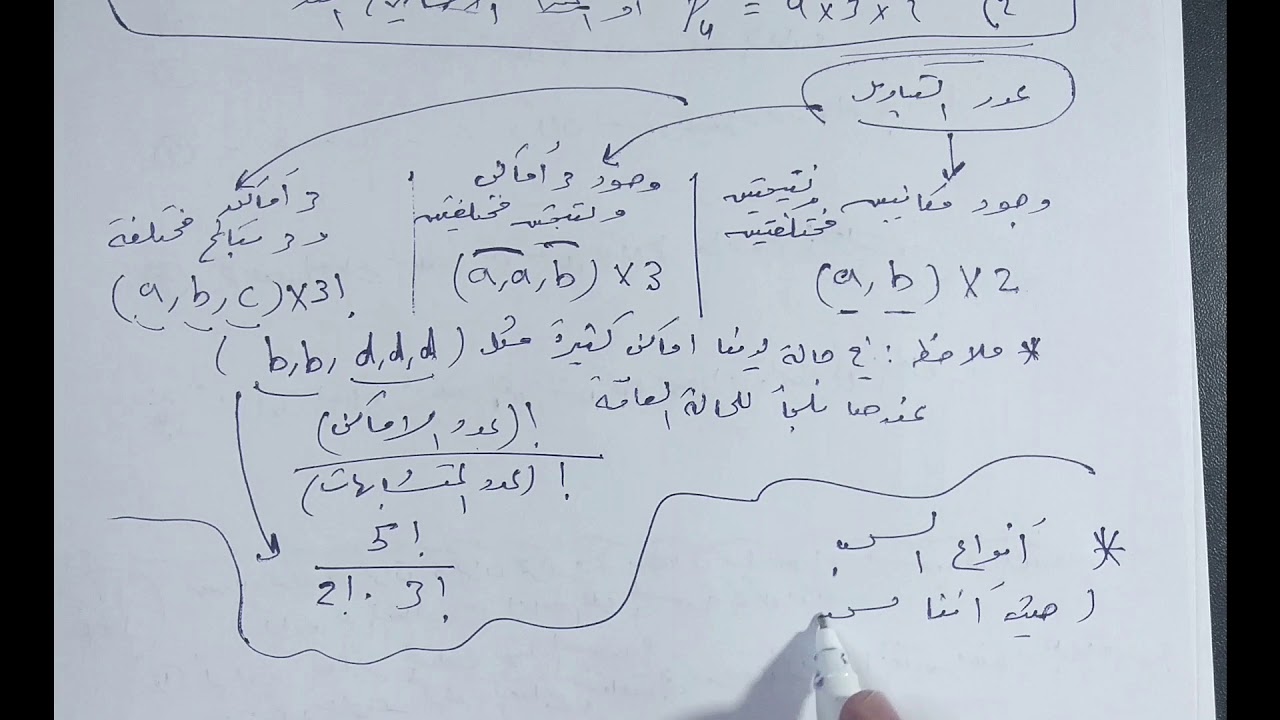 2) P₄ = 4×3×2 أو
عدد التباديل
وجود مكانيين ونتيجتين مختلفتين
(a, b) × 2
وجود 3 أماكن ونتيجتين مختلفتين
(a, a, b) × 3
3 أماكن و 3 نتائج مختلفة
(a, b, c) × 3!
* ملاحظة : في حالة لدينا اماكن كثيرة مثل (b, b, d, d, d)
عندها نلجأ للحالة العامة
(عدد الاماكن)!
(عدد المتشابهات)!
5!
2! . 3!
* أنواع السحب
( حيث أننا نسحب